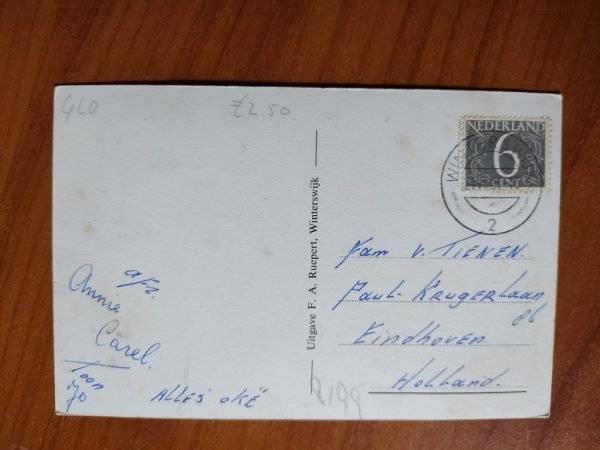 GLD
£2 50
NEDERLAND
6
CENT
WIN
2
Uitgave F. A. Ruepert, Winterswijk
Fam v. TIENEN.
Paul-KRUGERLaan
86
Eindhoven
Holland.
afz.
Annie
Carel.
Toon
Jo
ALLES OKË